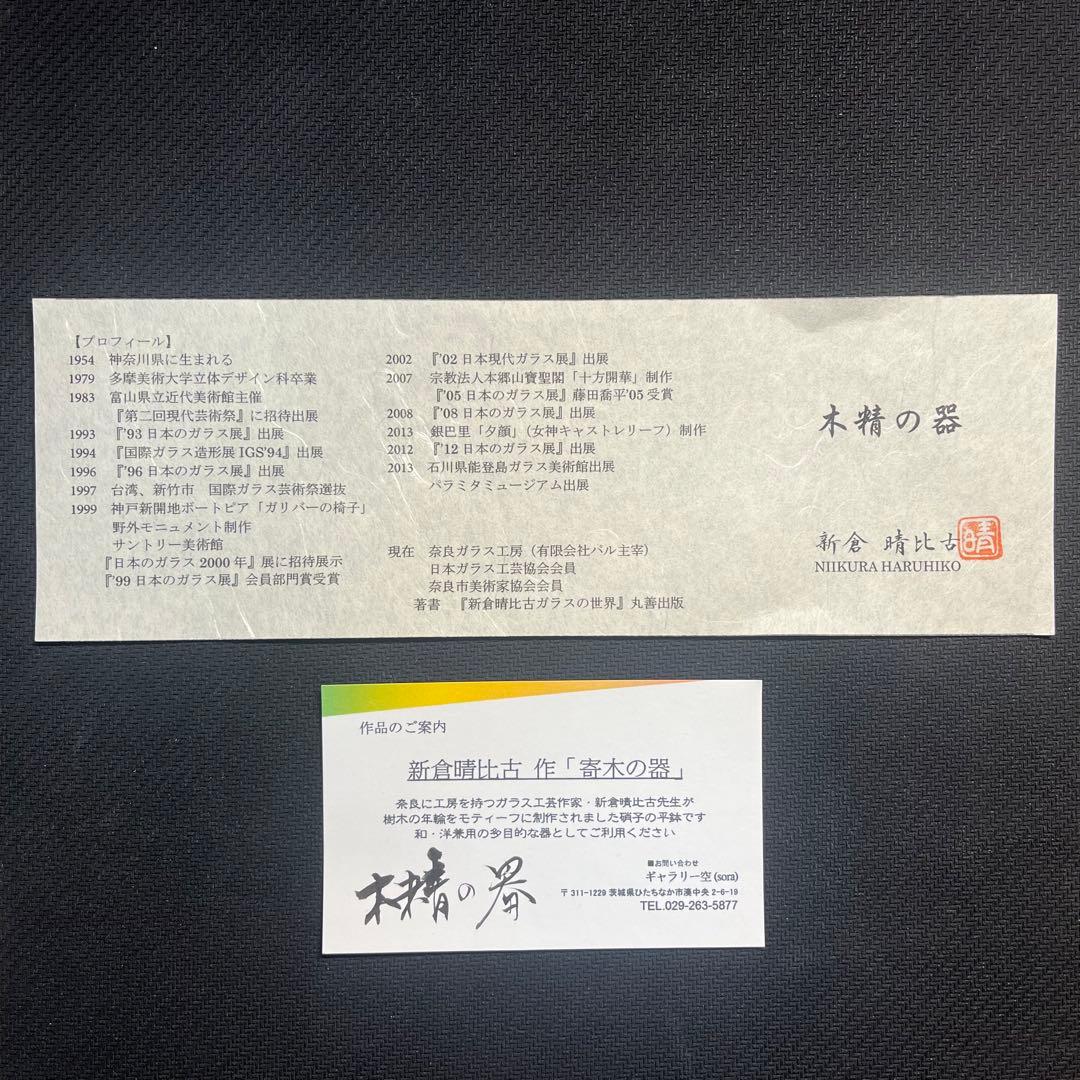 【プロフィール】
1954 神奈川県に生まれる
1979 多摩美術大学立体デザイン科卒業
1983 富山県立近代美術館主催
『第二回現代芸術祭』に招待出展
1993 『'93 日本のガラス展』出展
1994 『国際ガラス造形展 IGS'94』出展
1996 『'96 日本のガラス展』出展
1997 台湾、新竹市 国際ガラス芸術祭選抜
1999 神戸新開地ボートピア「ガリバーの椅子」
野外モニュメント制作
サントリー美術館
『日本のガラス 2000 年』展に招待展示
『'99 日本のガラス展』会員部門賞受賞
2002 『'02 日本現代ガラス展』出展
2007 宗教法人本郷山寶聖閣「十方開華」制作
『'05 日本のガラス展』藤田喬平'05 受賞
2008 『'08 日本のガラス展』出展
2013 銀巴里「夕顔」（女神キャストレリーフ）制作
2012 『'12 日本のガラス展』出展
2013 石川県能登島ガラス美術館出展
パラミタミュージアム出展
現在 奈良ガラス工房（有限会社パル主宰）
日本ガラス工芸協会会員
奈良市美術家協会会員
著書 『新倉晴比古ガラスの世界』丸善出版
木精の器
新倉 晴比古
晴
NIIKURA HARUHIKO
作品のご案内
新倉晴比古 作「寄木の器」
奈良に工房を持つガラス工芸作家・新倉晴比古先生が
樹木の年輪をモティーフに制作されました硝子の平鉢です
和・洋兼用の多目的な器としてご利用ください
木精の器
■お問い合わせ
ギャラリー空(sora)
〒311-1229 茨城県ひたちなか市湊中央 2-6-19
TEL.029-263-5877